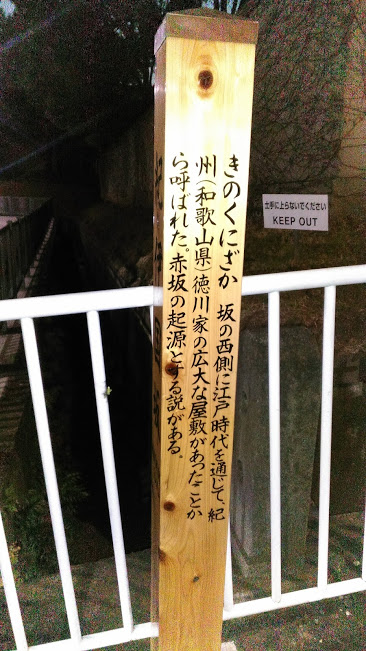 きのくにざか　坂の西側に江戸時代を通じて、紀
州（和歌山県）徳川家の広大な屋敷があったことか
ら呼ばれた。赤坂の起源とする説がある。
土手に上らないでください
KEEP OUT